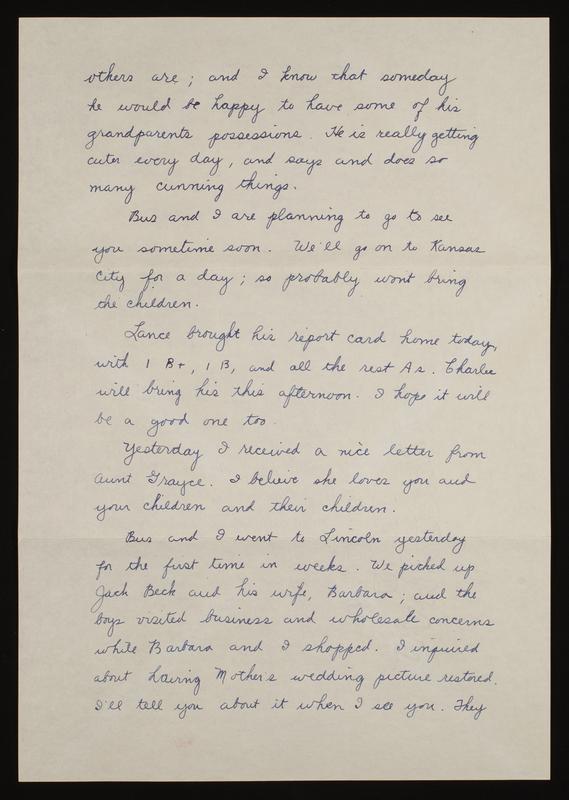 others are; and I know that someday
he would be happy to have some of his
grandparents possessions. He is really getting
cuter every day, and says and does so
many cunning things.
Bus and I are planning to go to see
you sometime soon. We'll go on to Kansas
City for a day; so probably wont bring
the children.
Lance brought his report card home today,
with 1 B+, 1 B, and all the rest As. Charlie
will bring his this afternoon. I hope it will
be a good one too.
Yesterday I received a nice letter from
Aunt Grayce. I believe she loves you and
your children and their children.
Bus and I went to Lincoln yesterday
for the first time in weeks. We picked up
Jack Beck and his wife, Barbara; and the
boys visited business and wholesale concerns
while Barbara and I shopped. I inquired
about having Mother's wedding picture restored.
I'll tell you about it when I see you. They